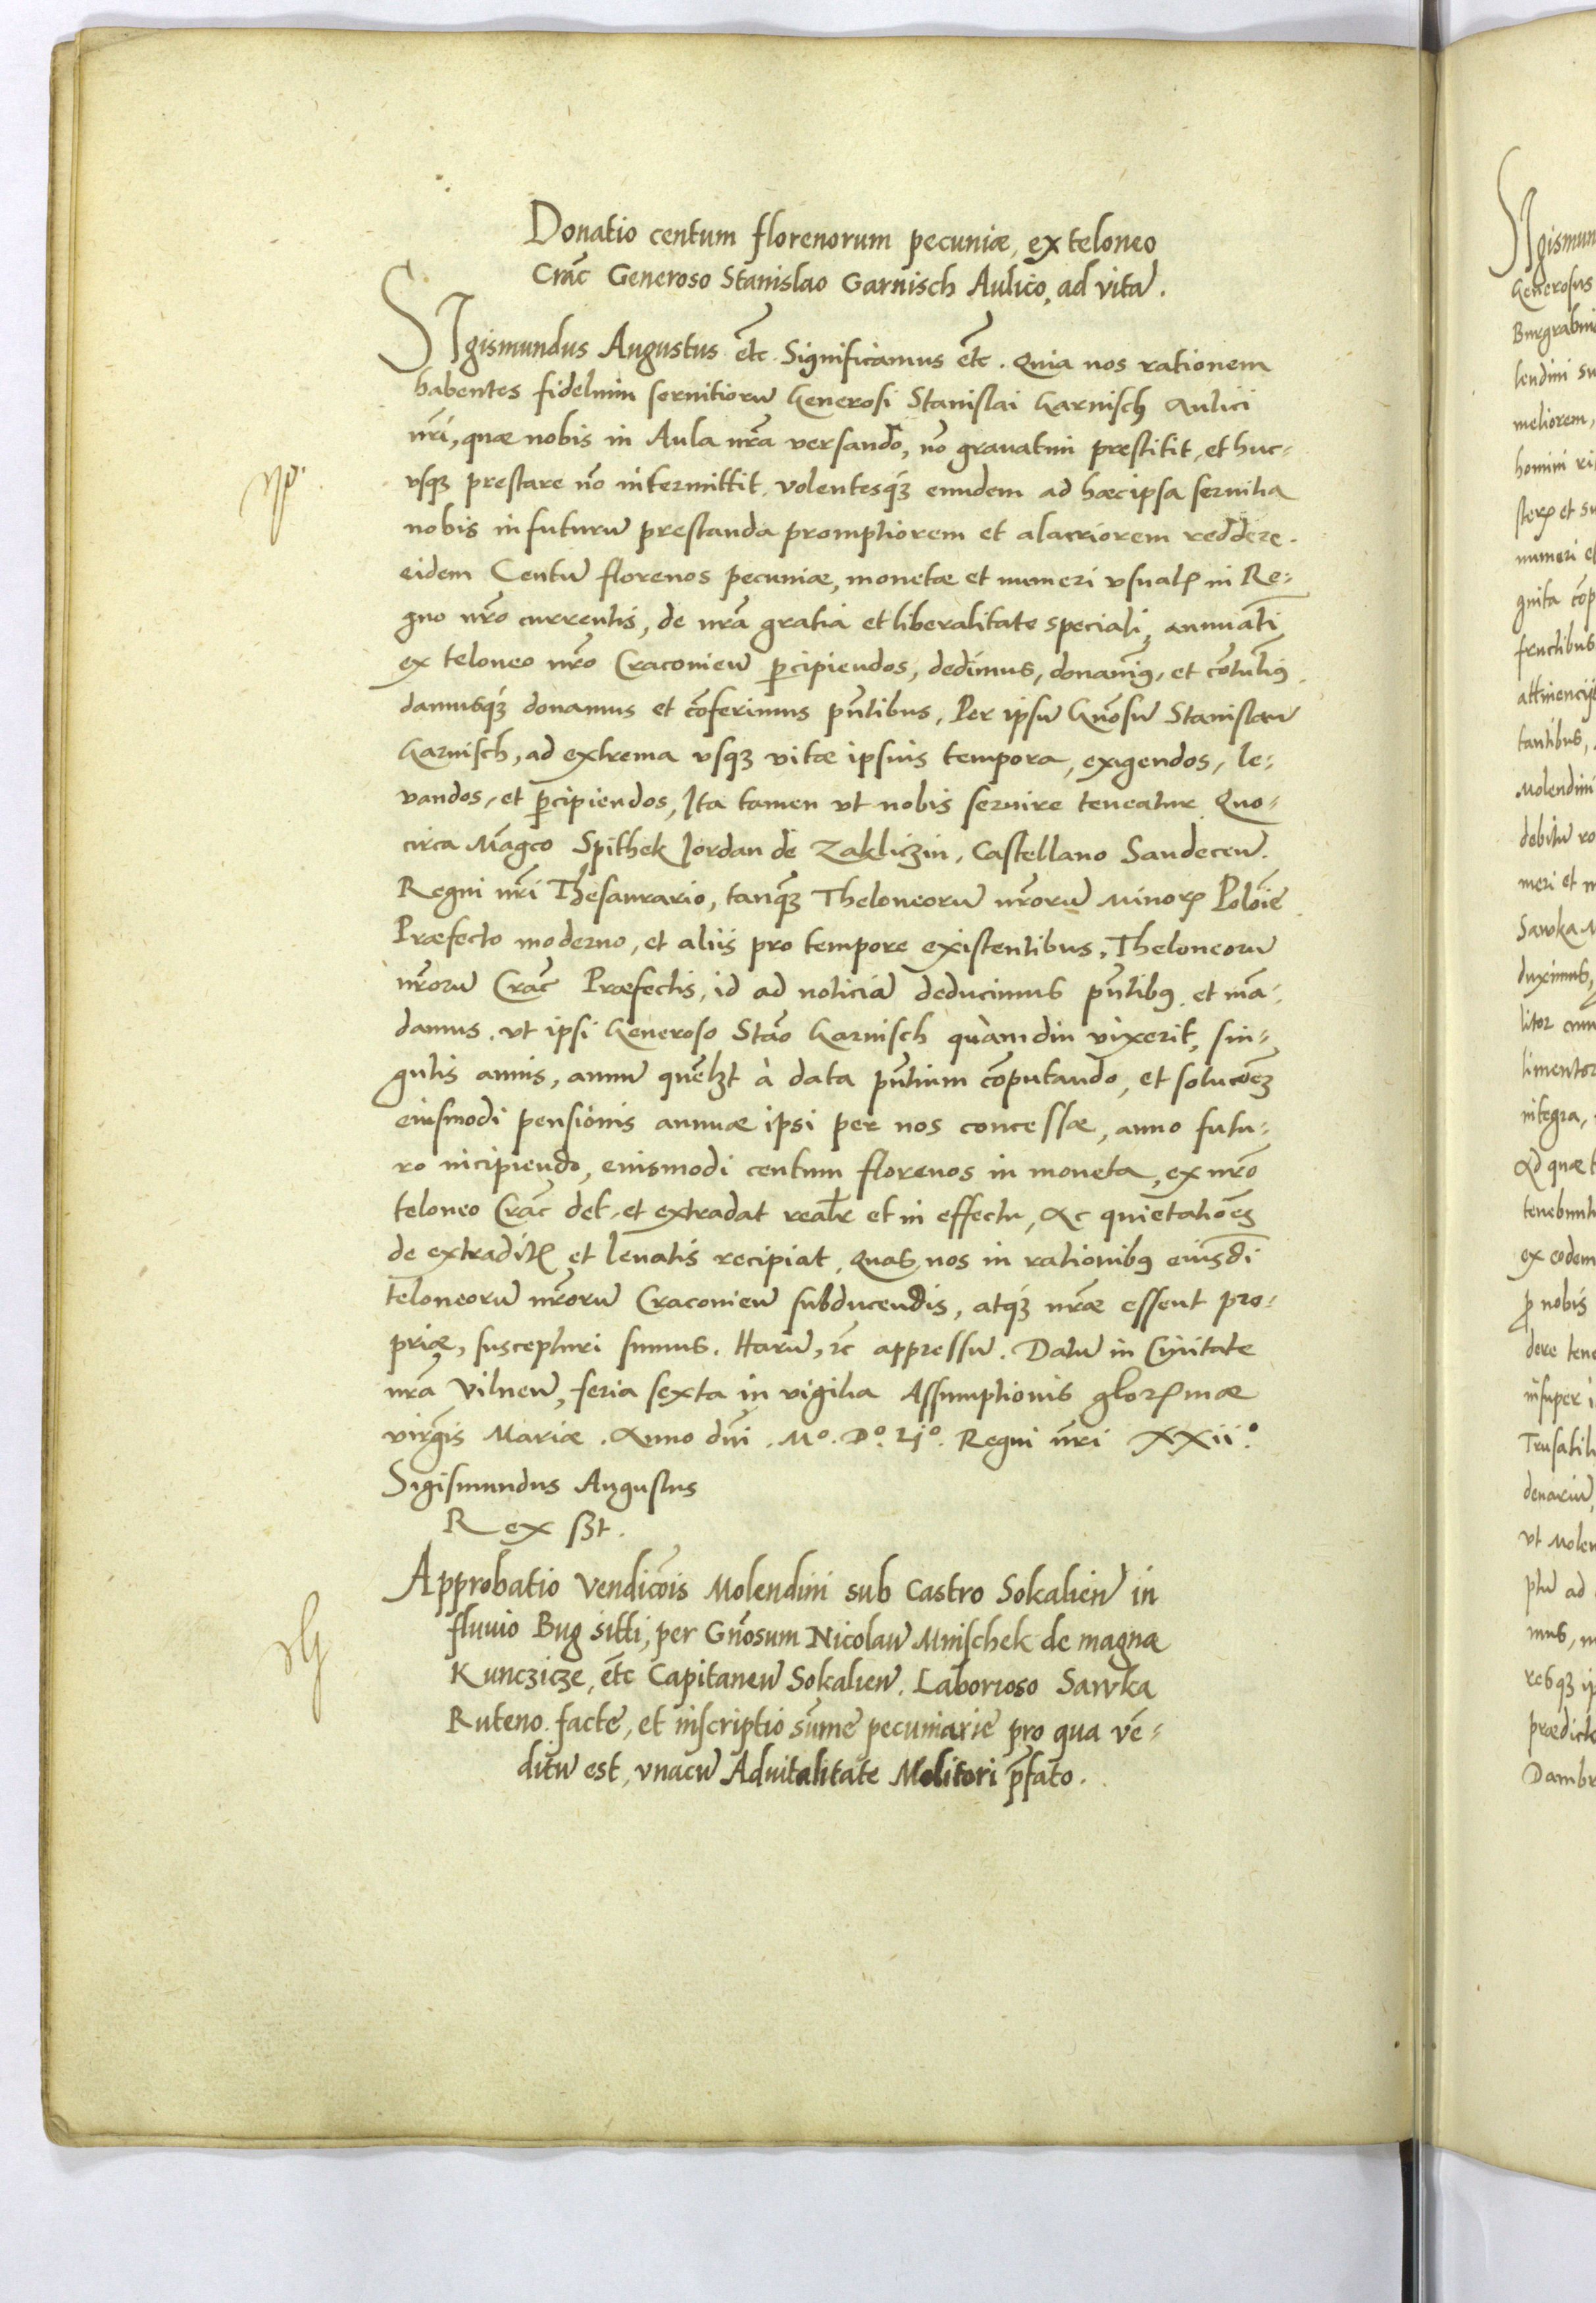 Donatio centum florenorum pecuniæ, ex teloneo
Crac̃ Generoso Stanislao Garnisch Aulico, ad vitã.
SIgismundus Augustus etc̃. Significamus etc̃. Quia nos rationem
habentes fidelium seruitiorũ Generosi Stanislai Garnisch Aulici
nr̃i, quæ nobis in Aula nr̃a versando, nõ grauatim præstitit, et huc-
vsqꝫ prestare nõ intermittit, volentesqꝫ eundem ad hæc ipsa seruitia
nobis in futurũ prestanda promptiorem et alacriorem reddere.
eidem Centũ florenos pecuniæ, monetæ et numeri vsualꝭ in Re-
gno nr̃o currentis, de nr̃a gratia et liberalitate speciali, annuati
ex teloneo nr̃o Craconieñ ꝑcipiendos, dedimus, donauimꝰ, et cõtulimꝰ
damusqꝫ donamus et cõferimus pñtibus, Per ipsũ Gñosũ Stanislaũ
Garnisch, ad extrema vsqꝫ vitæ ipsius tempora, exigendos, le-
vandos, et ꝑcipiendos, Ita tamen vt nobis seruire teneatur Quo-
circa Mag̃co Spithek Jordan de Zakliczin, Castellano Sandeceñ.
Regni nr̃i Thesaurario, tanqꝫ Theloneorũ nr̃orũ Minorꝭ Poloĩe
Præfecto moderno, et aliis pro tempore existentibus, Theloneorũ
nr̃orũ Crac̃ Præfectis, id ad noticiã deducimus pñtibꝰ, et mã-
damus, vt ipsi Generoso Stão Garnisch quàm diu vixerit, sin-
gulis annis, annũ quẽlꝫt à data pñtium cõputando, et solucõeꝫ
eiusmodi pensionis annuæ ipsi per nos concessæ, anno futu-
ro incipiendo, eiusmodi centum florenos in moneta, ex nr̃o
teloneo Crac̃ det, et extradat realr̃ et in effectu, Ac quietatiõeꝫ
de extraditꝭ et leuatis recipiat, Quas nos in rationibꝰ eiusdi
teloneorũ nr̃orũ Craconieñ subducendis, atqꝫ nr̃æ essent pro-
priæ, suscepturi sumus. Harũ, ꝛc appressũ. Datũ in Ciuitate
nr̃a Vilneñ, feria sexta in vigilia Assumptionis glorꝭmæ
virgĩs Mariæ. Anno dñi. Mᵒ. Dᵒ. Ljᵒ. Regni nr̃i XXiiᵒ.
Sigismundus Augustus
Rex sꝫt.
Approbatio vendicõis Molendini sub Castro Sokalieñ in
fluuio Bug sitti, per Gñosum Nicolaũ Mnischek de magna
Kunczicze, etc̃ Capitaneũ Sokalieñ. Laborioso Sawka
Ruteno. facte, et inscriptio sũme pecuniarie pro qua vẽ-
ditũ est, vnacũ Aduitalitate Molitori p̃fato.